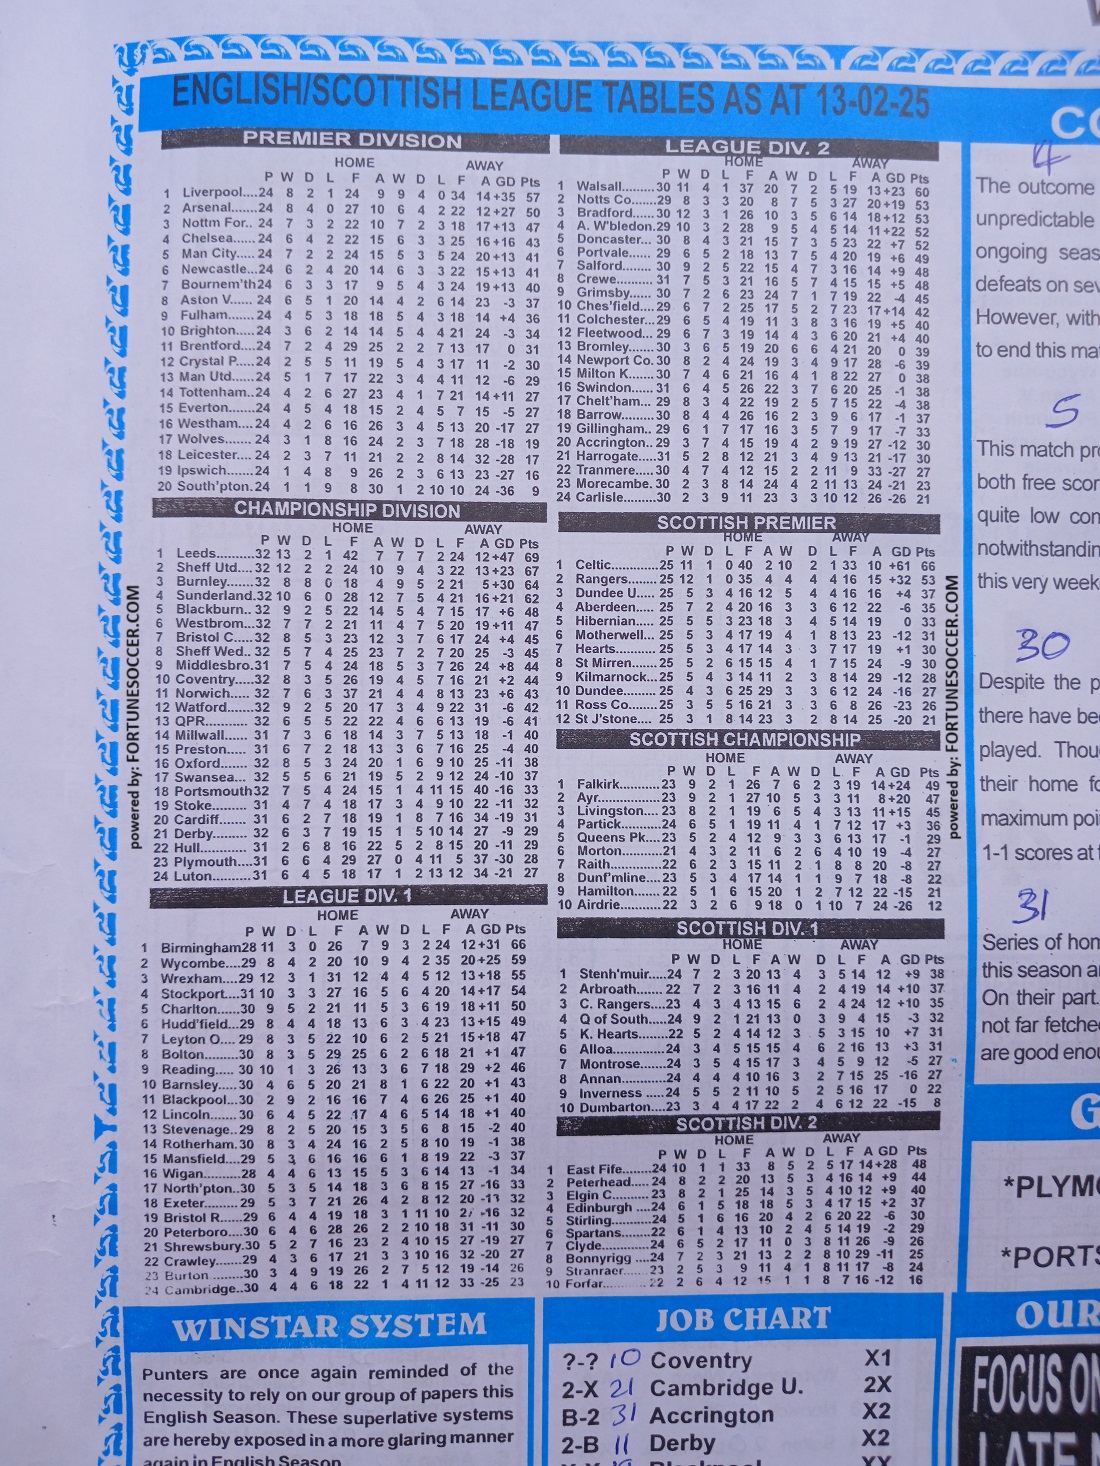 ENGLISH/SCOTTISH LEAGUE TABLES AS AT 13-02-25
PREMIER DIVISION
HOME AWAY
P W D L F A W D L F A GD Pts
1 Liverpool....24 8 2 1 24 9 9 4 0 34 14 +35 57
2 Arsenal.......24 8 4 0 27 10 6 4 2 22 12 +27 50
3 Nottm For.. 24 7 3 2 22 10 7 2 3 18 17 +13 47
4 Chelsea......24 6 4 2 22 15 6 3 3 25 16 +16 43
5 Man City.....24 7 2 2 24 15 5 3 5 24 20 +13 41
6 Newcastle...24 6 2 4 20 14 6 3 3 22 15 +13 41
7 Bournem'th24 6 3 3 17 9 5 4 3 24 19 +13 40
8 Aston V......24 6 5 1 20 14 4 2 6 14 23 -3 37
9 Fulham.......24 4 5 3 18 18 5 4 3 18 14 +4 36
10 Brighton.....24 3 6 2 14 14 5 4 4 21 24 -3 34
11 Brentford....24 7 2 4 29 25 2 2 7 13 17 0 31
12 Crystal P....24 2 5 5 11 19 5 4 3 17 11 -2 30
13 Man Utd......24 5 1 7 17 22 3 4 4 11 12 -6 29
14 Tottenham..24 4 2 6 27 23 4 1 7 21 14 +11 27
15 Everton.......24 4 5 4 18 15 2 4 5 7 15 -5 27
16 Westham....24 4 2 6 16 26 3 4 5 13 20 -17 27
17 Wolves.......24 3 1 8 16 24 2 3 7 18 28 -18 19
18 Leicester....24 2 3 7 11 21 2 2 8 14 32 -28 17
19 Ipswich......24 1 4 8 9 26 2 3 6 13 23 -27 16
20 South'pton.24 1 1 9 8 30 1 2 10 10 24 -36 9
CHAMPIONSHIP DIVISION
HOME AWAY
P W D L F A W D L F A GD Pts
1 Leeds..........32 13 2 1 42 7 7 7 2 24 12 +47 69
2 Sheff Utd....32 12 2 2 24 10 9 4 3 22 13 +23 67
3 Burnley.......32 8 8 0 18 4 9 5 2 21 5 +30 64
4 Sunderland.32 10 6 0 28 12 7 5 4 21 16 +21 62
5 Blackburn.. 32 9 2 5 22 14 5 4 7 15 17 +6 48
6 Westbrom...32 7 7 2 21 11 4 7 5 20 19 +11 47
7 Bristol C.....32 8 5 3 23 12 3 7 6 17 24 +4 45
8 Sheff Wed.. 32 5 7 4 25 23 7 2 7 20 25 -3 45
9 Middlesbro.31 7 5 4 24 18 5 3 7 26 24 +8 44
10 Coventry.....32 8 3 5 26 19 4 5 7 16 21 +2 44
11 Norwich......32 7 6 3 37 21 4 4 8 13 23 +6 43
12 Watford.......32 9 2 5 20 17 3 4 9 22 31 -6 42
13 QPR............32 6 5 5 22 22 4 6 6 13 19 -6 41
14 Millwall........31 7 3 6 18 14 3 7 5 13 18 -1 40
15 Preston.......31 6 7 2 18 13 3 6 7 16 25 -4 40
16 Oxford.........32 8 5 3 24 20 1 6 9 10 25 -11 38
17 Swansea....32 5 5 6 21 19 5 2 9 12 24 -10 37
18 Portsmouth32 7 5 4 24 15 1 4 11 15 40 -16 33
19 Stoke..........31 4 7 4 18 17 3 4 9 10 22 -11 32
20 Cardiff.........31 6 2 7 18 19 1 8 7 16 34 -19 31
21 Derby..........32 6 3 7 19 15 1 5 10 14 27 -9 29
22 Hull.............31 2 6 8 16 22 5 2 8 15 20 -11 29
23 Plymouth....31 6 6 4 29 27 0 4 11 5 37 -30 28
24 Luton..........31 6 4 5 18 17 1 2 13 12 34 -21 27
LEAGUE DIV. 1
HOME AWAY
P W D L F A W D L F A GD Pts
1 Birmingham28 11 3 0 26 7 9 3 2 24 12 +31 66
2 Wycombe....29 8 4 2 20 10 9 4 2 35 20 +25 59
3 Wrexham....29 12 3 1 31 12 4 4 5 12 13 +18 55
4 Stockport....31 10 3 3 27 16 5 6 4 20 14 +17 54
5 Charlton......30 9 5 2 21 11 5 3 6 19 18 +11 50
6 Hudd'field...29 8 4 4 18 13 6 3 4 23 13 +15 49
7 Leyton O....29 8 3 5 22 10 6 2 5 21 15 +18 47
8 Bolton.........30 8 3 5 29 25 6 2 6 18 21 +1 47
9 Reading......30 10 1 3 26 13 3 6 7 18 29 +2 46
10 Barnsley.....30 4 6 5 20 21 8 1 6 22 20 +1 43
11 Blackpool...30 2 9 2 16 16 7 4 6 26 25 +1 40
12 Lincoln.......30 6 4 5 22 17 4 6 5 14 18 +1 40
13 Stevenage..29 8 2 5 20 15 3 5 6 8 15 -2 40
14 Rotherham.30 8 3 4 24 16 2 5 8 10 19 -1 38
15 Mansfield....29 5 3 6 16 16 6 1 8 19 22 -3 37
16 Wigan........28 4 4 6 13 15 5 3 6 14 13 -1 34
17 North'pton..30 5 3 5 14 18 3 6 8 15 27 -16 33
18 Exeter........29 5 3 7 21 26 4 2 8 12 20 -13 32
19 Bristol R.....29 6 4 4 19 18 3 1 11 10 27 -16 32
20 Peterboro....30 6 4 6 28 26 2 2 10 18 31 -11 30
21 Shrewsbury.30 5 2 7 16 23 2 4 10 15 27 -19 27
22 Crawley......29 4 3 6 17 21 3 3 10 16 32 -20 27
23 Burton .......30 3 4 9 19 26 2 7 5 12 19 -14 26
24 Cambridge..30 4 4 6 18 22 1 4 11 12 33 -25 23
LEAGUE DIV. 2
HOME AWAY
P W D L F A W D L F A GD Pts
1 Walsall........30 11 4 1 37 20 7 2 5 19 13 +23 60
2 Notts Co.....29 8 3 3 20 8 7 5 3 27 20 +19 53
3 Bradford.....30 12 3 1 26 10 3 5 6 14 18 +12 53
4 A. W'bledon.29 10 3 2 28 9 5 4 5 14 11 +22 52
5 Doncaster...30 8 4 3 21 15 7 3 5 23 22 +7 52
6 Portvale......29 6 5 2 18 13 7 5 4 20 19 +6 49
7 Salford........30 9 2 5 22 15 4 7 3 16 14 +9 48
8 Crewe.........31 7 5 3 21 16 5 7 4 15 15 +5 48
9 Grimsby......30 7 2 6 23 24 7 1 7 19 22 -4 45
10 Ches'field...29 6 7 2 25 17 5 2 7 23 17 +14 42
11 Colchester..29 6 5 4 19 11 3 8 3 16 19 +5 40
12 Fleetwood...29 6 7 3 19 14 4 3 6 20 21 +4 40
13 Bromley.....30 3 6 5 19 20 6 6 4 21 20 0 39
14 Newport Co.30 8 2 4 24 19 3 4 9 17 28 -6 39
15 Milton K.....30 7 4 6 21 16 4 1 8 22 27 0 38
16 Swindon.....31 6 4 5 26 22 3 7 6 20 25 -1 38
17 Chelt'ham...29 8 3 4 22 19 2 5 7 15 22 -4 38
18 Barrow.......30 8 4 4 26 16 2 3 9 6 17 -1 37
19 Gillingham..29 6 1 7 17 16 3 5 7 9 17 -7 33
20 Accrington..29 3 7 4 15 19 4 2 9 19 27 -12 30
21 Harrogate...31 5 2 8 12 21 3 4 9 13 21 -17 30
22 Tranmere....30 4 7 4 12 15 2 2 11 9 33 -27 27
23 Morecambe.30 2 3 8 14 24 4 2 11 13 24 -21 23
24 Carlisle.......30 2 3 9 11 23 3 3 10 12 26 -26 21
SCOTTISH PREMIER
HOME AWAY
P W D L F A W D L F A GD Pts
1 Celtic..........25 11 1 0 40 2 10 2 1 33 10 +61 66
2 Rangers......25 12 1 0 35 4 4 4 4 16 15 +32 53
3 Dundee U....25 5 3 4 16 12 5 4 4 16 16 +4 37
4 Aberdeen....25 7 2 4 20 16 3 3 6 12 22 -6 35
5 Hibernian....25 5 5 3 23 18 3 4 5 14 19 0 33
6 Motherwell...25 5 3 4 17 19 4 1 8 13 23 -12 31
7 Hearts.........25 5 3 4 17 14 3 3 7 17 19 +1 30
8 St Mirren.....25 5 2 6 15 15 4 1 7 15 24 -9 30
9 Kilmarnock...25 5 4 3 14 11 2 3 8 14 29 -12 28
10 Dundee......25 4 3 6 25 29 3 3 6 12 24 -16 27
11 Ross Co.....25 3 5 5 16 21 3 3 6 8 26 -23 26
12 St J'stone....25 3 1 8 14 23 3 2 8 14 25 -20 21
SCOTTISH CHAMPIONSHIP
HOME AWAY
P W D L F A W D L F A GD Pts
1 Falkirk.........23 9 2 1 26 7 6 2 3 19 14 +24 49
2 Ayr..............23 9 2 1 27 10 5 3 3 11 8 +20 47
3 Livingston...23 8 2 1 19 6 5 4 3 13 11 +15 45
4 Partick........24 6 5 1 19 11 4 1 7 12 17 +3 36
5 Queens Pk...23 5 2 4 12 9 3 3 6 13 17 -1 29
6 Morton.......21 4 3 2 11 6 2 6 4 10 19 -4 27
7 Raith..........22 6 2 3 15 11 2 1 8 8 20 -8 27
8 Dunf'mline...23 5 3 4 17 14 1 1 9 7 18 -8 22
9 Hamilton.....22 5 1 6 15 20 1 2 7 12 22 -15 21
10 Airdrie........22 3 2 6 9 18 0 1 10 7 24 -26 12
SCOTTISH DIV. 1
HOME AWAY
P W D L F A W D L F A GD Pts
1 Stenh'muir.....24 7 2 3 20 13 4 3 5 14 12 +9 38
2 Arbroath.......22 7 2 3 16 11 4 2 4 19 14 +10 37
3 C. Rangers...23 4 3 4 13 15 6 2 4 24 12 +10 35
4 Q of South....24 9 2 1 21 13 0 3 9 4 15 -3 32
5 K. Hearts.....22 5 2 4 14 12 3 5 3 15 10 +7 31
6 Alloa............24 3 4 5 15 15 4 6 2 16 13 +3 31
7 Montrose......24 3 5 4 15 17 3 4 5 9 12 -5 27
8 Annan..........24 4 4 4 10 16 3 2 7 15 25 -16 27
9 Inverness .....24 5 5 2 11 10 5 2 5 16 17 0 22
10 Dumbarton....23 3 4 4 17 22 2 4 6 12 22 -15 8
SCOTTISH DIV. 2
HOME AWAY
P W D L F A W D L F A GD Pts
1 East Fife.......24 10 1 1 33 8 5 2 5 17 14 +28 48
2 Peterhead.....24 8 2 2 20 13 5 3 4 16 14 +9 44
3 Elgin C.........23 8 2 1 25 14 3 5 4 10 12 +9 40
4 Edinburgh ....24 6 1 5 18 18 5 3 4 17 15 +2 37
5 Stirling.........24 5 1 6 16 20 4 2 6 20 22 -6 30
6 Spartans......22 6 1 4 13 10 2 4 5 14 19 -2 29
7 Clyde..........24 6 5 2 17 11 0 3 8 11 26 -9 26
8 Bonnyrigg ...24 7 2 3 21 13 2 2 8 10 29 -11 25
9 Stranraer.....23 2 5 3 9 11 4 1 8 11 17 -8 24
10 Forfar..........22 2 6 4 12 15 1 1 8 7 16 -12 16
powered by: FORTUNESOCCER.COM
powered by: FORTUNESOCCER.COM
WINSTAR SYSTEM
Punters are once again reminded of the
necessity to rely on our group of papers this
English Season. These superlative systems
are hereby exposed in a more glaring manner
again in English Season.
JOB CHART
?-? 10 Coventry X1
2-X 21 Cambridge U. 2X
B-2 31 Accrington X2
2-B 11 Derby X2
CO
4
The outcome
unpredictable
ongoing seas
defeats on sev
However, with
to end this ma
5
This match pro
both free scor
quite low con
notwithstandin
this very week
30
Despite the p
there have bee
played. Thou
their home fo
maximum poi
1-1 scores at t
31
Series of hom
this season a
On their part.
not far fetche
are good enou
G
*PLYMO
*PORTS
OUR
FOCUS ON
LATE N